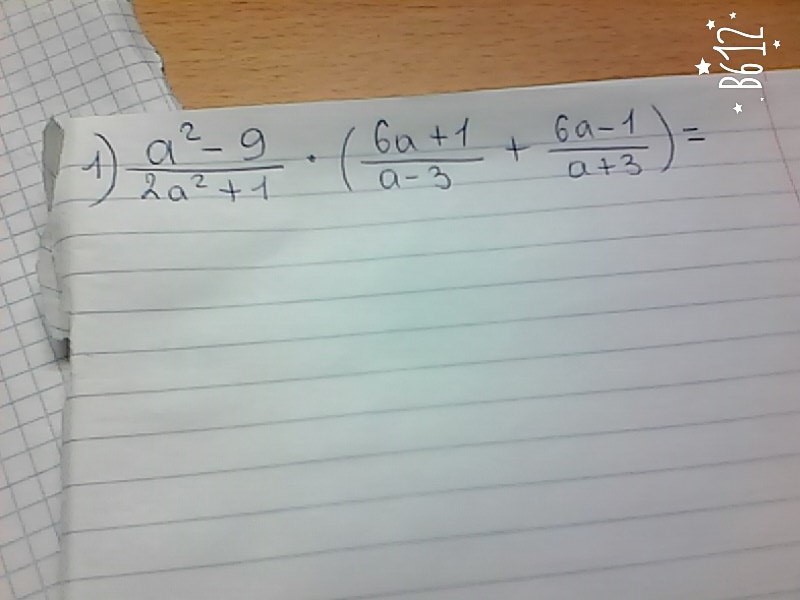 1) (a² - 9)/(2a² + 1) · ((6a + 1)/(a - 3) + (6a - 1)/(a + 3)) =
B612